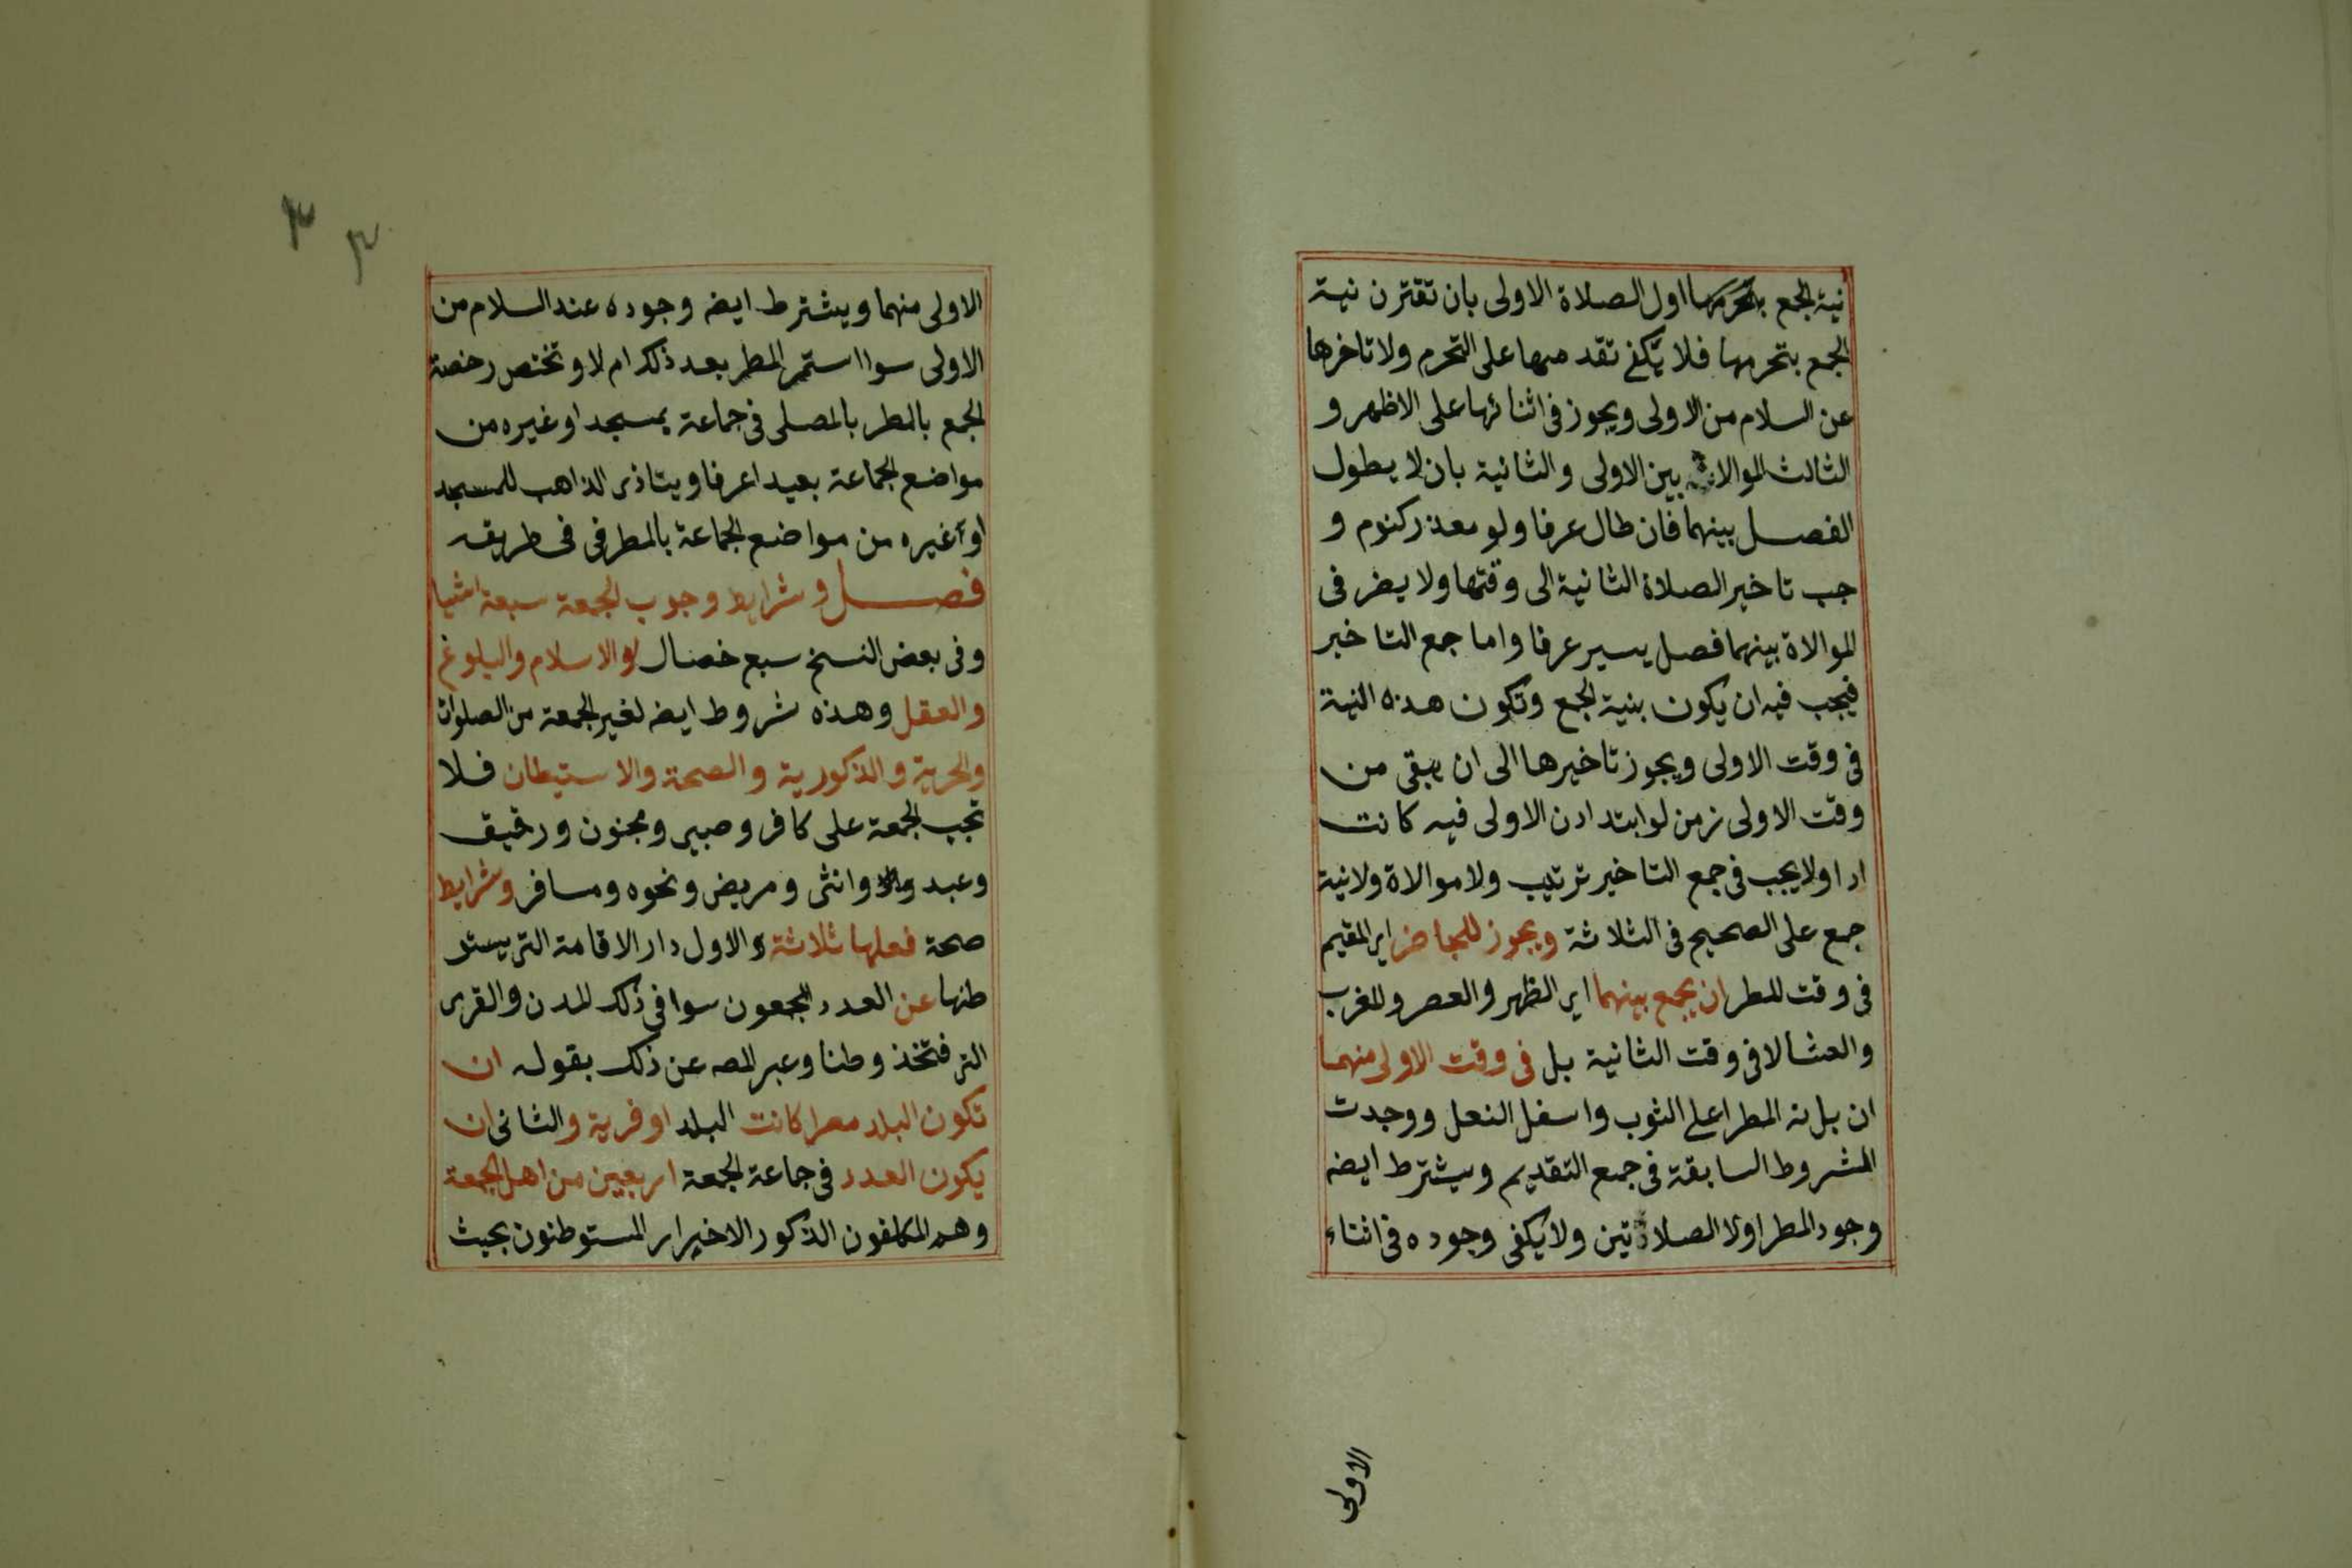 نية الجمع بتحرمها اول الصلاة الاولى بان تقترن نية
الجمع بتحرمها فلا يكفى تقدمها على التحرم ولا تاخرها
عن السلام من الاولى ويجوز فى اثنائها على الاظهر و
الثالث الموالاة بين الاولى والثانية بان لا يطول
الفصل بينهما فان طال عرفا ولو معذر كنوم و
جب تاخير الصلاة الثانية الى وقتها ولا يضر فى
الموالاة بينهما فصل يسير عرفا واما جمع التاخير
فيجب فيه ان يكون بنية الجمع وتكون هذه النية
فى وقت الاولى ويجوز تاخيرها الى ان يبقى من
وقت الاولى زمن لو ابتدات الاولى فيه كانت
ادا ولا يجب فى جمع التاخير ترتيب ولا موالاة ولا نية
جمع على الصحيح فى الثلاثة ويجوز للحاضر اى المقيم
فى وقت المطر ان يجمع بينهما اى الظهر والعصر والمغرب
والعشا لا فى وقت الثانية بل فى وقت الاولى منهما
ان بل نه المطر اعلى الثوب واسفل النعل ووجدت
الشروط السابقة فى جمع التقديم ويشترط ايضه
وجود المطر اولا الصلاتين ولا يكفى وجوده فى اثناء
الاولى
٣
٣
الاولى منهما ويشترط ايضه وجوده عند السلام من
الاولى سوا استمر المطر بعد ذلك ام لا وتختص رخصة
الجمع بالمطر بالمصلى فى جماعة بمسجد او غيره من
مواضع الجماعة بعيدا عرفا ويتاذى الذاهب للمسجد
او غيره من مواضع الجماعة بالمطر فى فى طريقه
فصل وشرايط وجوب الجمعة سبعة اشيا
وفى بعض النسخ سبع خصال الاسلام والبلوغ
والعقل وهذه شروط ايضه لغير الجمعة من الصلوات
والحرية والذكورية والصحة والاستيطان فلا
تجب الجمعة على كافر وصبى ومجنون ورقيق
وعبد وانثى ومريض ونحوه ومسافر وشرايط
صحة فعلها ثلاثة والاول دار الاقامة التى يستو
طنها عن العدد المجمعون سوا فى ذلك المدن والقرى
التى فتخذ وطنا وعبر المصه عن ذلك بقوله ان
تكون البلد مصرا كانت البلد او قرية والثانى ان
يكون العدد فى جماعة الجمعة اربعين من اهل الجمعة
وهم المكلفون الذكور الاخيرار المستوطنون بحيث